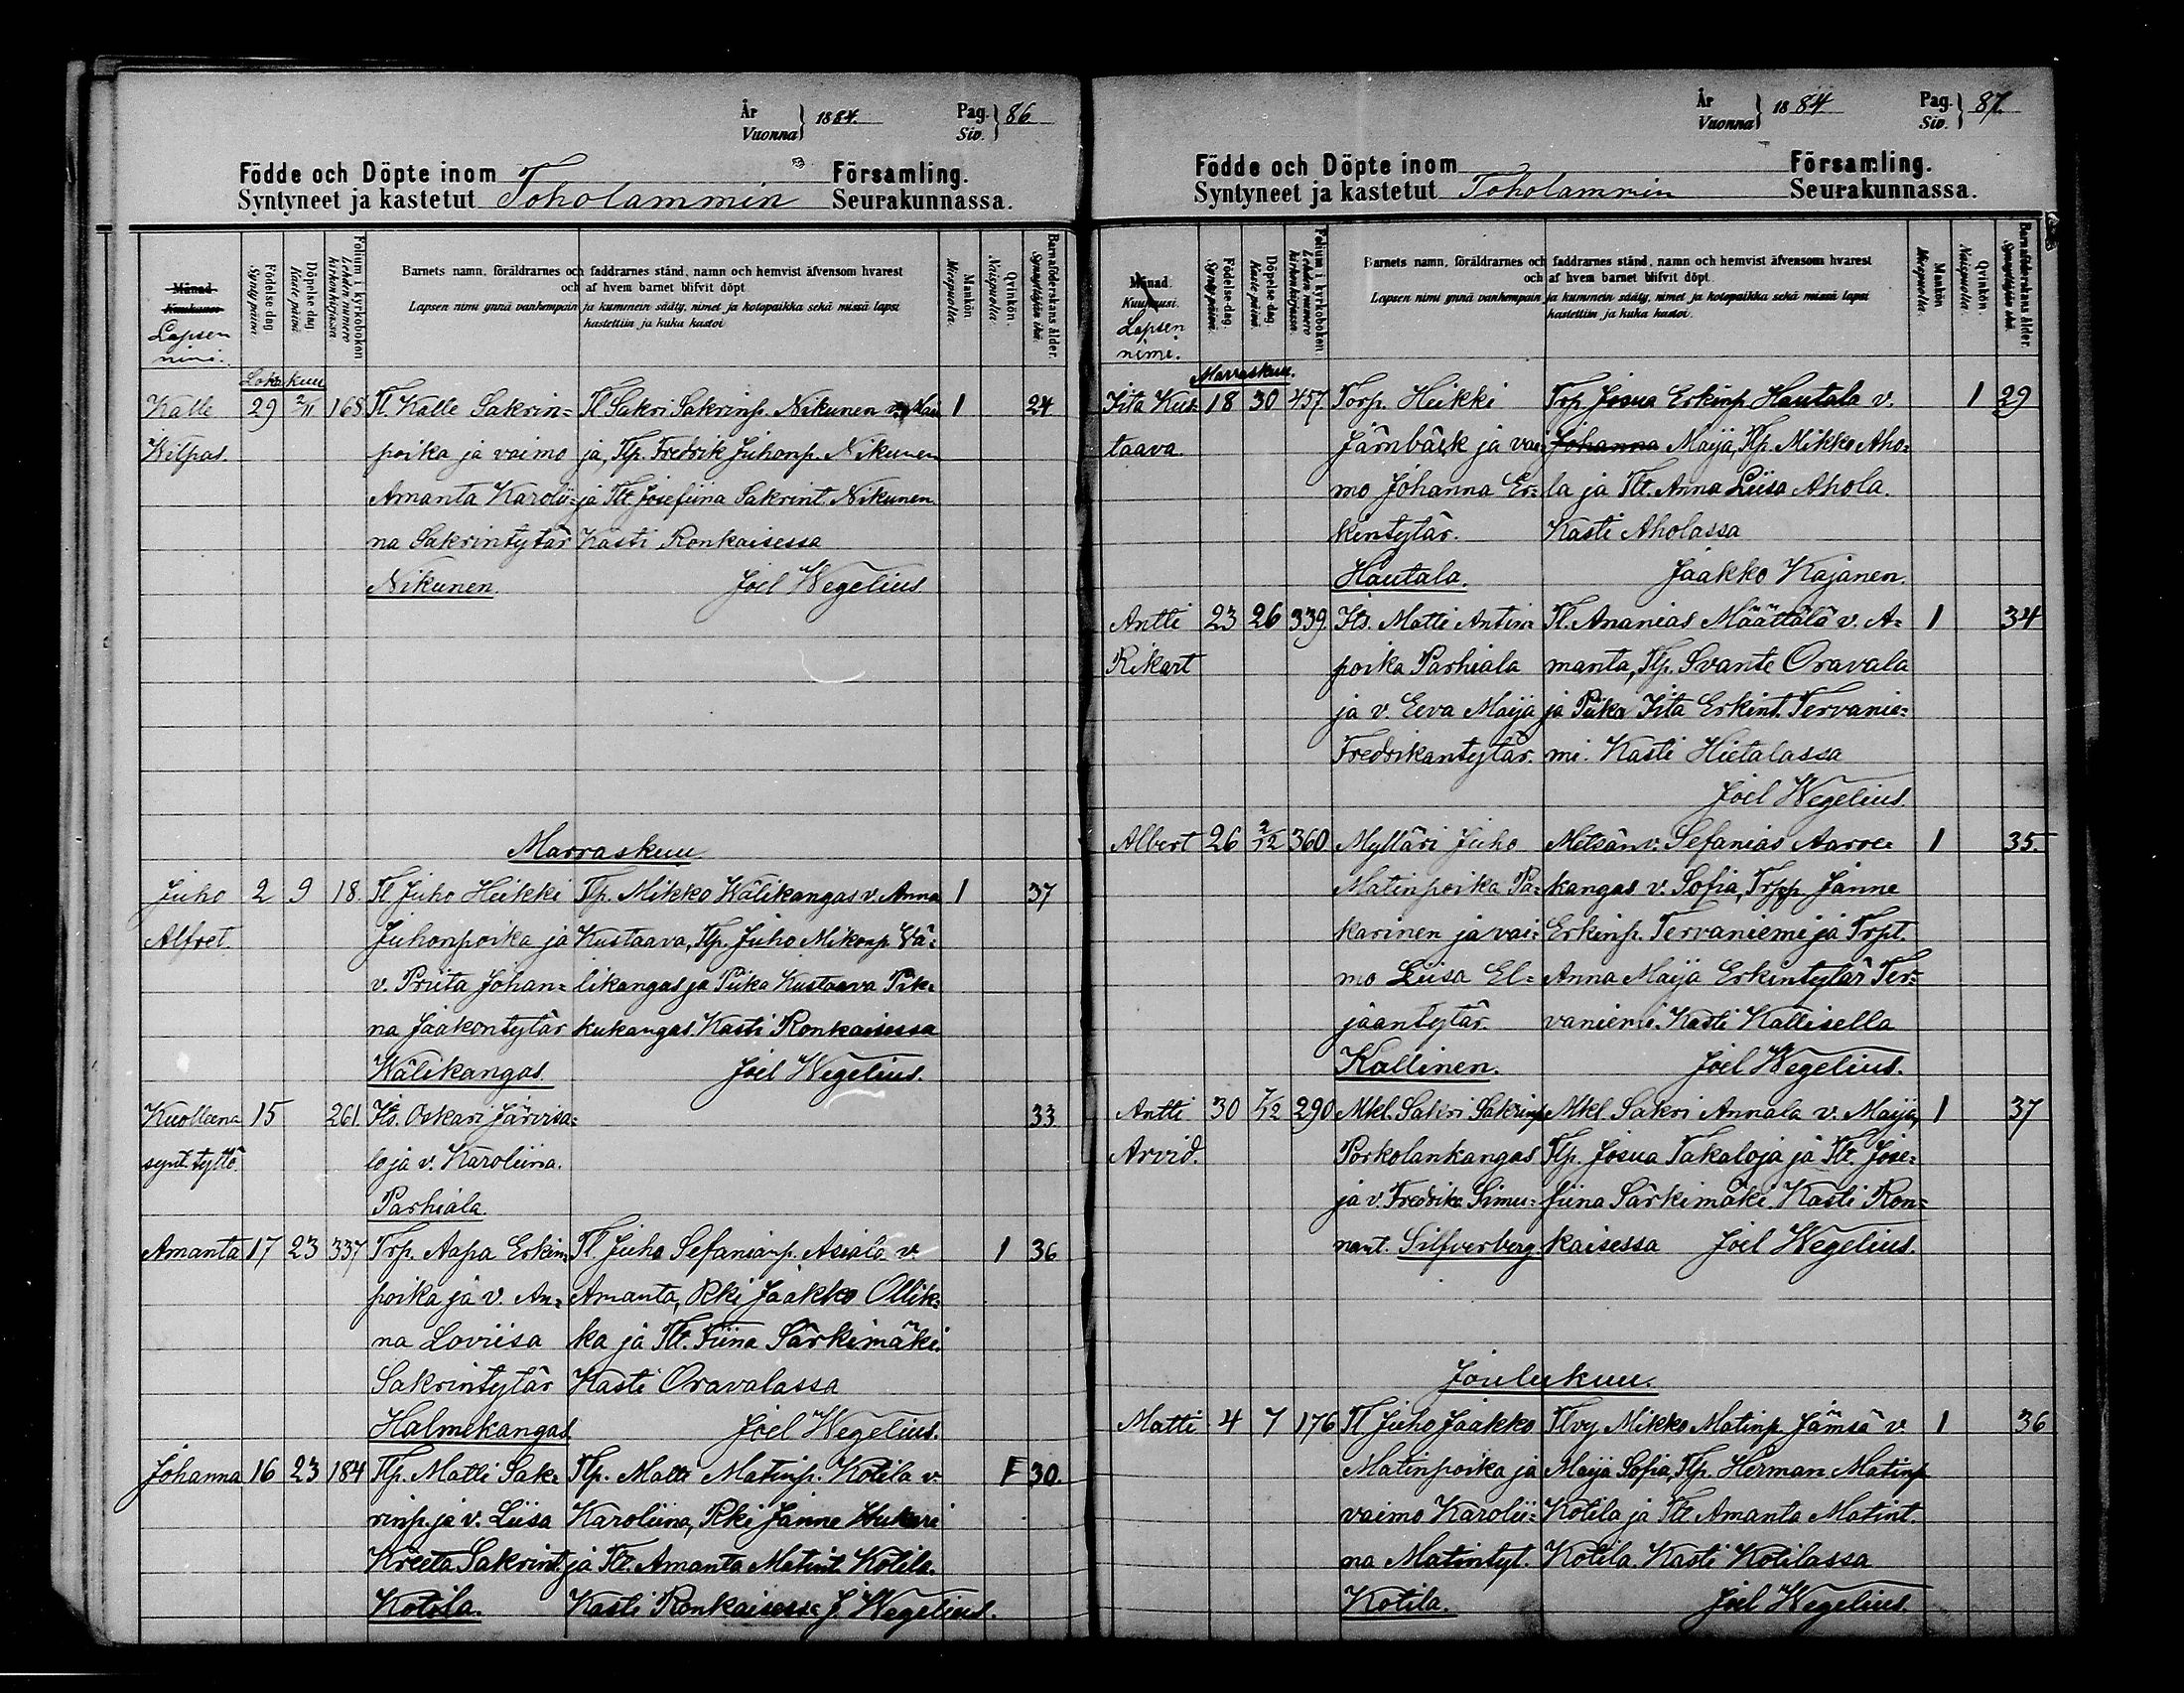 År
Vuonna } 1884.
Pag.
Siv. } 86
Födde och Döpte inom Församling.
Syntyneet ja kastetut Toholammin Seurakunnassa.
Månad.
Kuukausi
Lapsen
nimi.
Födelse-dag.
Syndy päivä.
Döpelse-dag
Kaste päivä
Folium i kyrkoboken
Lehden numero
kirkonkirjassa
Barnets namn, föräldrarnes och faddrarnes stånd, namn och hemvist äfvensom hvarest
och af hvem barnet blifvit döpt
Lapsen nimi ynnä vanhempain ja kummein sääty, nimet ja kotopaikka sekä missä lapsi
kastettiin ja kuka kastoi
Mankön
Miespuolta.
Qvinkön.
Naispuolta.
Barnaföderskans ålder.
Synnyttäjän ikä.
Lokakuu
Kalle 29 2/11 168 Tl. Kalle Sakrin= Tl Sakri Sakrinp. Nikunen v. Mai 1 24
Wilpas. poika ja vaimo ja, Tlp. Fredrik Juhonp. Nikunen
Amanta Karolii= ja Tlt. Josefiina Sakrint. Nikunen
na Sakrintytär Kasti Ronkaisessa
Nikunen. Joel Wegelius.
Marraskuu
Juho 2 9 18. Tl. Juho Heikki Tlp. Mikko Wälikangas v. Anna 1 37
Alfret. Juhonpoika ja Kustaava, Tlp. Juho Mikonp. Wä=
v. Priita Johan= likangas ja Piika Kustaava Pik=
na Jaakontytär kukangas. Kasti Ronkaisessa
Wälikangas. Joel Wegelius.
Kuolleena 15 261. Its. Oskari Järvisa= 33
synt. tyttö. lo ja v. Karoliina.
Parhiala.
Amanta 17 23 337 Trp. Aapa Erkin= Tl. Juho Sefanianp. Asiala v. 1 36
poika ja v. An= Amanta, Rki Jaakko Ollik=
na Loviisa ka ja Tlt. Tiina Särkimäki.
Sakrintytär Kasti Oravalassa
Halmekangas. Joel Wegelius.
Johanna 16 23 184 Tlp. Matti Sak= Tlp. Matti Matinp. Kotila v. 1 30.
rinp. ja v. Liisa Karoliina, Rki Janne Hukari
Kreeta Sakrint. ja Tlt. Amanta Matint. Kotila.
Kotila. Kasti Ronkaisessa J. Wegelius.
År
Vuonna } 1884
Pag.
Siv. } 87.
Födde och Döpte inom Församling.
Syntyneet ja kastetut Toholammin Seurakunnassa.
Månad.
Kuukausi.
Lapsen
nimi.
Födelse-dag.
Syndy päivä.
Döpelse-dag.
Kaste päivä.
Folium i kyrkoboken.
Lehden numero
kirkonkirjassa.
Barnets namn, föräldrarnes och faddrarnes stånd, namn och hemvist äfvensom hvarest
och af hvem barnet blifvit döpt.
Lapsen nimi ynnä vanhempain ja kummein sääty, nimet ja kotopaikka sekä missä lapsi
kastettiin ja kuka kastoi.
Mankön
Miespuolta.
Qvinkön.
Naispuolta.
Barnaföderskans ålder.
Synnyttäjän ikä.
Marraskuu.
Iita Kus= 18 30 457. Torp. Heikki Trp. Josua Erkinp. Hautala v. 1 29
taava. Järnbäck ja vai= Johanna Maija, Tlp. Mikko Aho=
mo Johanna Er= la ja Tlt. Anna Liisa Ahola.
kintytär. Kasti Aholassa
Hautala. Jaakko Kajanen.
Antti 23 26 339. Its. Matti Antin= Tl. Ananias Määttälä v. A= 1 34
Rikart poika Parhiala manta, Tlp. Svante Oravala
ja v. Eeva Maija ja Piika Iita Erkint. Tervanie=
Fredrikantytär. mi. Kasti Hietalassa
Joel Wegelius.
Albert 26 2/12 360 Mylläri Juho Metsänv. Sefanias Aarre= 1 35.
Matinpoika Pa= kangas v. Sofia, Trpp. Janne
karinen ja vai= Erkinp. Tervaniemi ja Trpt.
mo Liisa El= Anna Maija Erkintytär Ter=
jaantytär. vaniemi. Kasti Kallisella
Kallinen. Joel Wegelius.
Antti 30 7/12 290 Mkl. Sakri Sakrinp. Mkl. Sakri Annala v. Maija, 1 37
Arvid. Porkolankangas Tlp. Josua Takaloja ja Tlt. Jose=
ja v. Fredrika Simu= fiina Särkimäki. Kasti Ron=
nant. Silfverberg kaisessa Joel Wegelius.
Joulukuu.
Matti 4 7 176 Tl Juho Jaakko Tlvy Mikko Matinp. Jämsä v. 1 36
Matinpoika ja Maija Sofia, Tlp. Herman Matinp
vaimo Karolii= Kotila ja Tlt Amanta Matint.
na Matintyt. Kotila. Kasti Kotilassa
Kotila. Joel Wegelius.